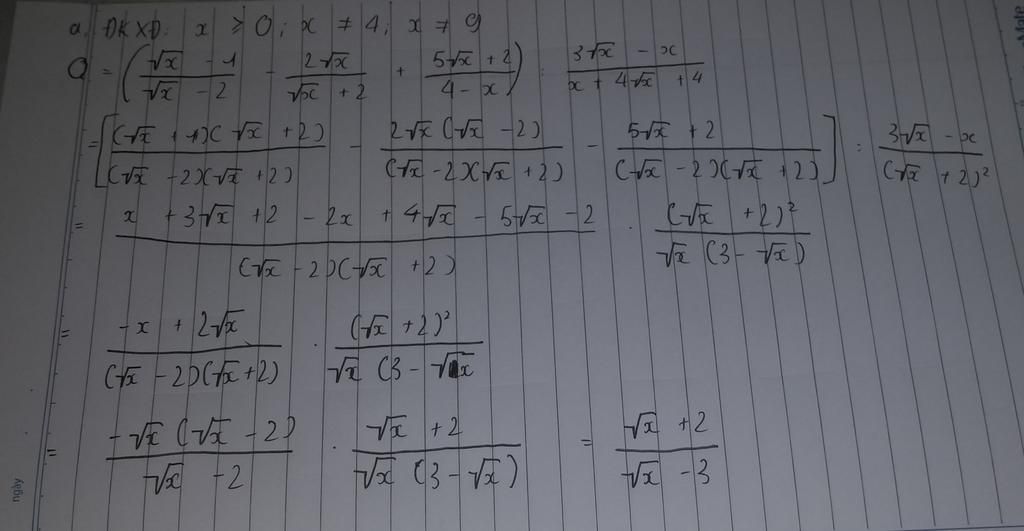 a. ĐKXĐ: x ≥ 0; x ≠ 4; x ≠ 9
Q = ( (√x - 1)/(√x - 2) - 2√x/(√x + 2) + (5√x + 2)/(4 - x) ) : (3√x - x)/(x + 4√x + 4)
= [ (√x + 1)(√x + 2)/(√x - 2)(√x + 2) - 2√x(√x - 2)/(√x - 2)(√x + 2) - (5√x + 2)/(√x - 2)(√x + 2) ] : (3√x - x)/(√x + 2)²
= (x + 3√x + 2 - 2x + 4√x - 5√x - 2)/(√x - 2)(√x + 2) . (√x + 2)²/√x (3 - √x)
= (-x + 2√x)/(√x - 2)(√x + 2) . (√x + 2)²/√x (3 - √x
= -√x (√x - 2)/(√x - 2) . (√x + 2)/√x (3 - √x) = (√x + 2)/(√x - 3)
ngày